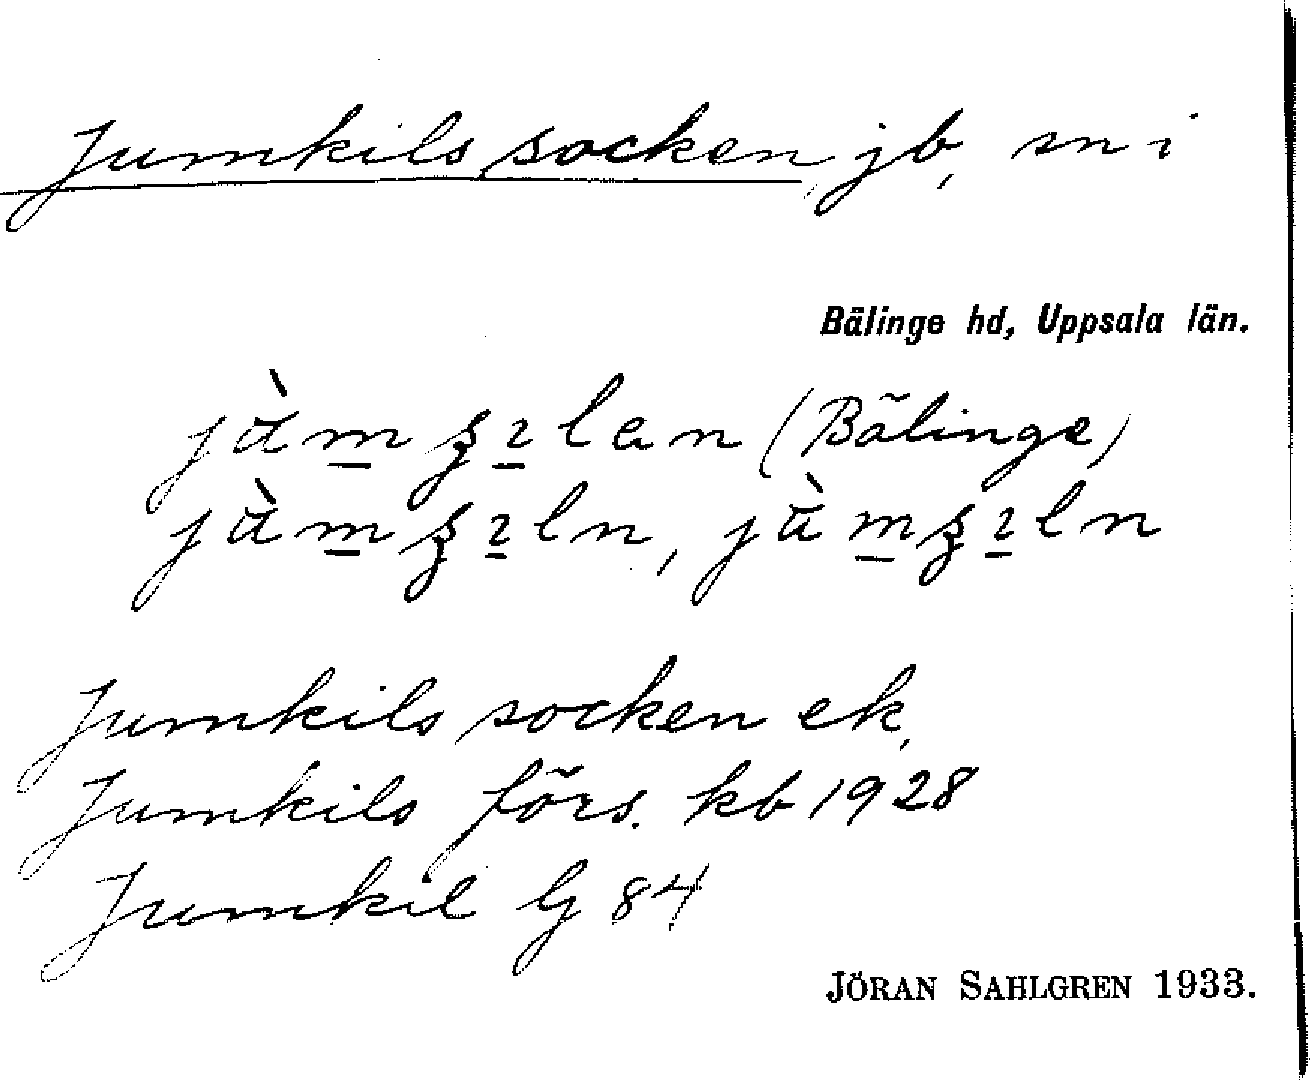 Jumkils socken, jb, sn i
Bälinge hd, Uppsala län.
(Bälinge)
Jumkils socken ek,
Jumkils förs. kb 1928
Jumkil G 84
JÖRAN SAHLGREN 1933.